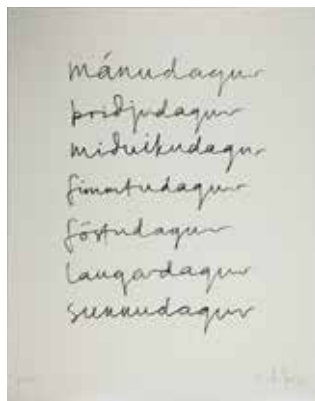 mánudagur
þriðjudagur
miðvikudagur
fimmtudagur
föstudagur
laugardagur
sunnudagur